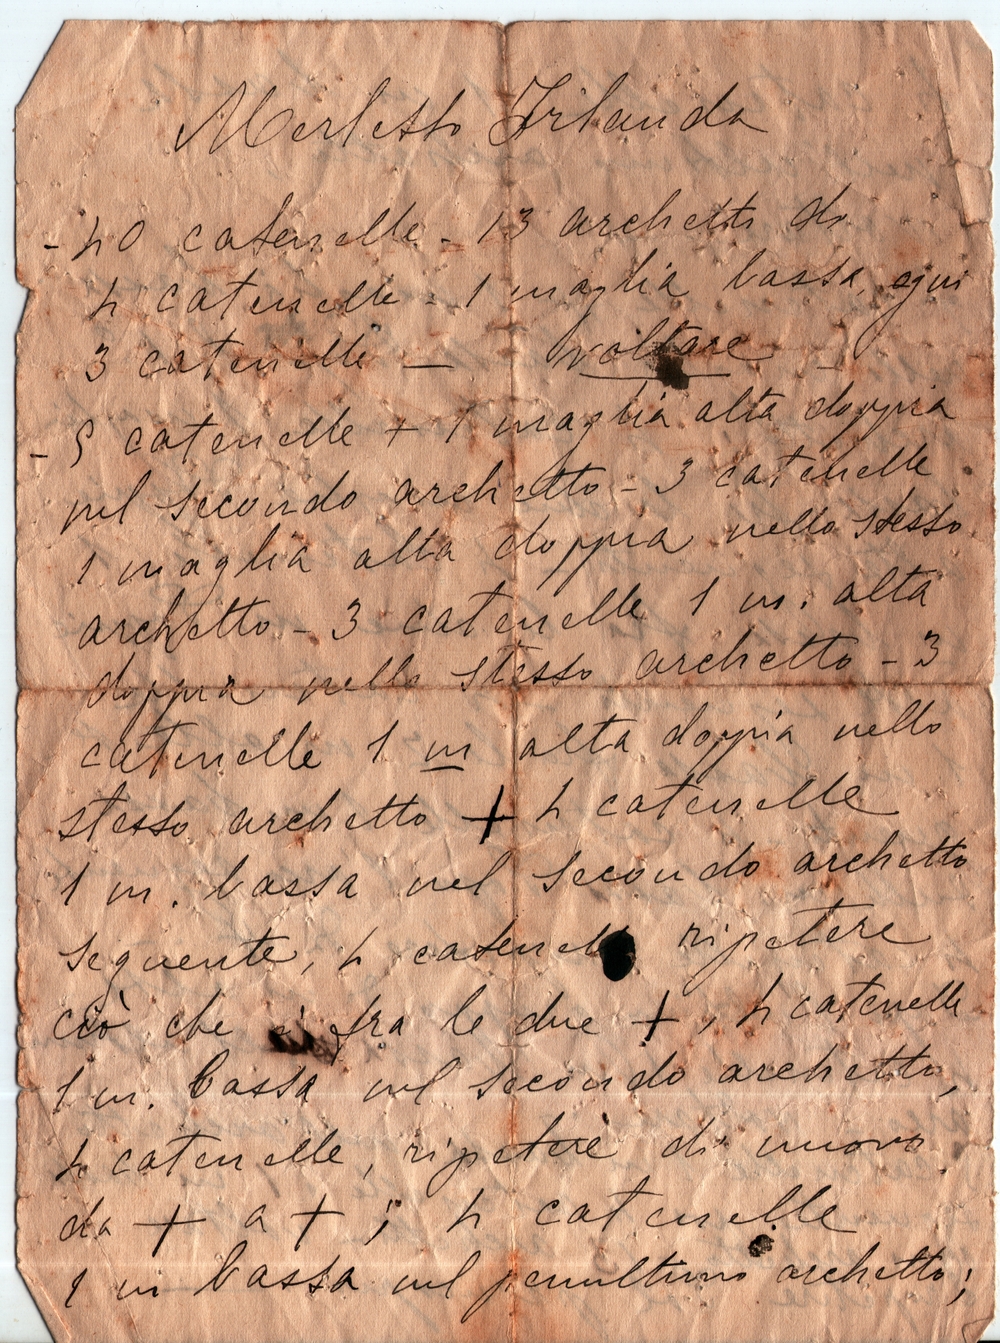 Merletto Irlanda
- 40 catenelle - 13 archetti di
4 catenelle - 1 maglia bassa, ogni
3 catenelle — voltare -
- 5 catenelle + 1 maglia alta doppia
nel secondo archetto - 3 catenelle
1 maglia alta doppia nello stesso
archetto - 3 catenelle 1 m. alta
doppia nello stesso archetto - 3
catenelle 1 m alta doppia nello
stesso archetto + 4 catenelle
1 m. bassa nel secondo archetto
seguente, 4 catenelle ripetere
ciò che è fra le due +, 4 catenelle
1 m. bassa nel secondo archetto,
4 catenelle, ripetere di nuovo
da + a + ; 4 catenelle
1 m bassa nel penultimo archetto;